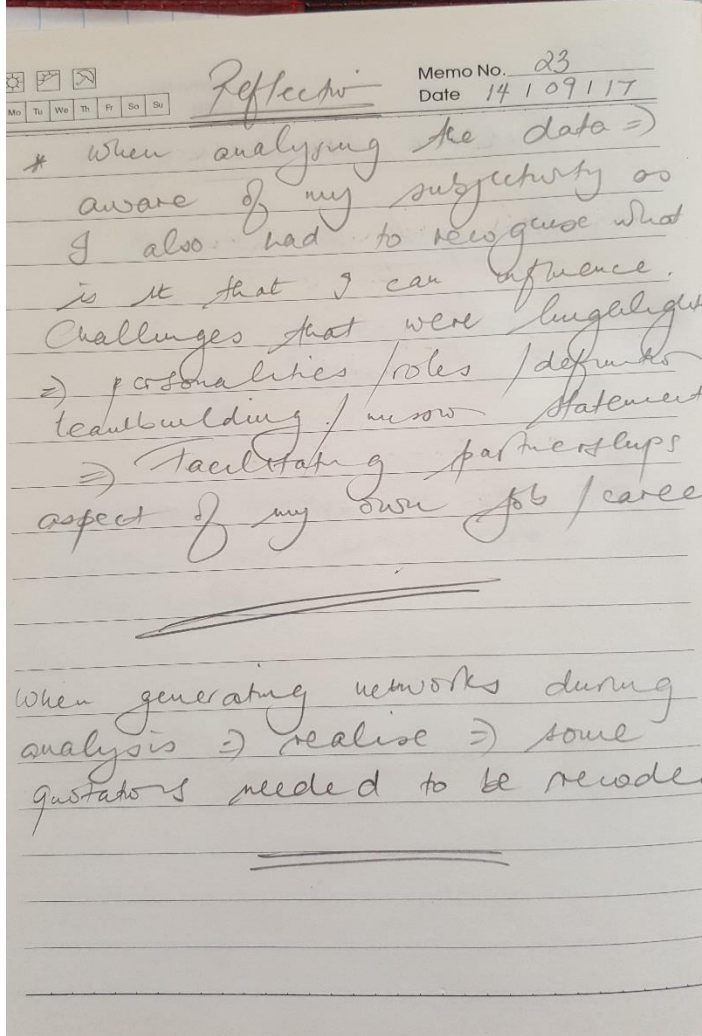 Mo Tu We Th Fr Sa Su
Reflectio
Memo No. 23
Date 14 / 09 / 17
* When analysing the data =>
aware of my subjectivity as
I also had to recognise what
is it that I can influence.
Challenges that were
=> personalities / roles /
teambuilding / statement
=> Facilitating partnerships
aspect of my own job / caree
When generating networks during
analysis => realise => some
quotations needed to be recode